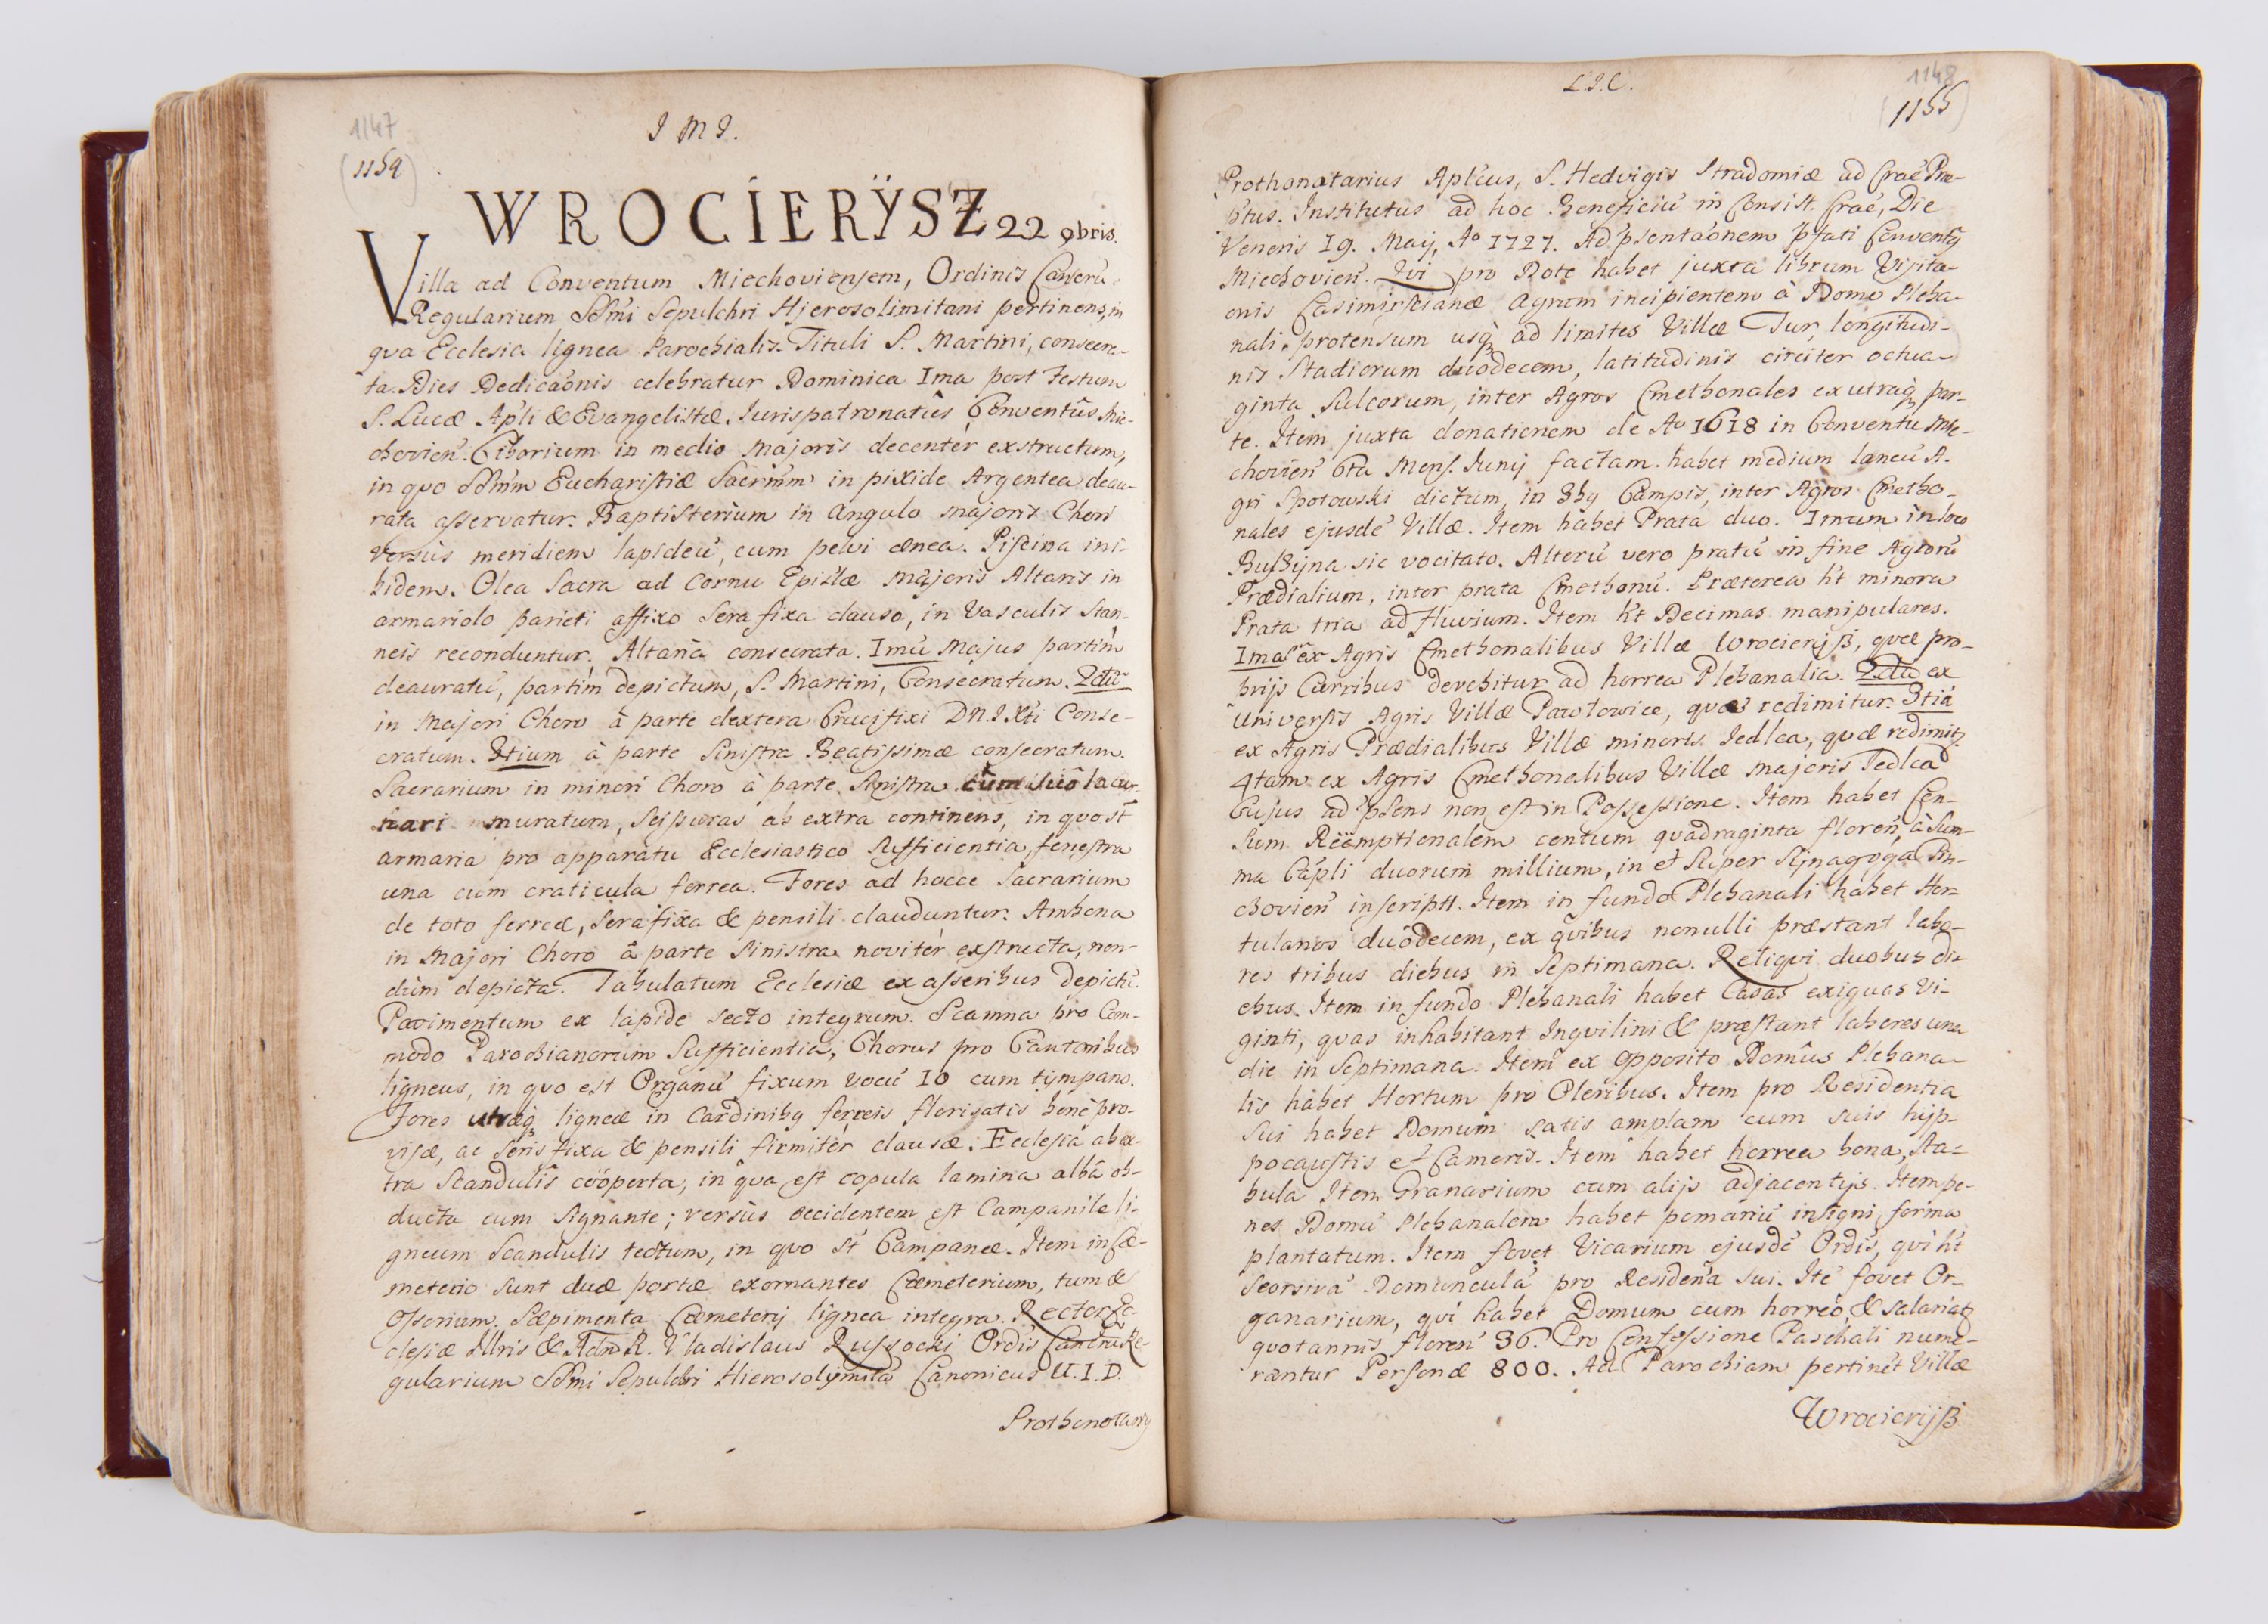 1147
(1154)
I M I.
WROCIERYSZ 22 9bris.
Villa ad Conventum Miechoviensem, Ordinis Canonru
Regularium SSmi Sepulchri Hjerosolimitani pertinens, in
qva Ecclesia lignea Parochialis. Tituli S. Martini, consecra-
ta. Dies Dedicaonis celebratur Dominica Ima post Festum
S. Lucæ Apli & Evangelistæ. Iurispatronatûs Conventûs Mie-
chovien. Ciborium in medio majoris decenter exstructum,
in qvo SSmum Eucharistiæ Sacrum in pixide Argentea deau-
rata asservatur. Baptisterium in angulo majoris Chori
versùs meridiem lapideu, cum pelvi ænea. Piscina ini-
bidem. Olea Sacra ad Cornu Epistlæ majoris Altaris in
armariolo parieti affixo sera fixa clauso, in vasculis stan-
neis reconduntur. Altaria consecrata. Imu Majus partim
deauratu, partim depictum, S. Martini, Consecratum. 2du
in Majori Choro à parte dextera Crucifixi DN. I Xti Conse-
cratum. 3tium à parte sinistra Beatissimæ consecratum.
Sacrarium in minori Choro à parte sinistra cum suo lacu-
nari muratum, scissuras ab extra continens, in qvo st
armaria pro apparatu Ecclesiastico sufficientia, fenestra
una cum craticula ferrea. Fores ad hocce Sacrarium
de toto ferreæ, sera fixa & pensili clauduntur. Ambona
in Majori Choro à parte sinistra noviter exstructa, non-
dum depicta. Tabulatum Ecclesiæ ex asseribus depictu.
Pavimentum ex lapide secto integrum. Scamna pro Com-
modo Parochianorum sufficientia, Chorus pro Cantoribus
ligneus, in qvo est Organu fixum vocu 10 cum tympano.
Fores utræq ligneæ in Cardinibq ferreis florisatis benè pro-
visæ, ac seris fixa & pensili firmitèr clausæ. Ecclesia ab ex-
tra Scandulis coöperta, in qva est copula lamina albâ ob-
ducta cum Signante; versùs occidentem est Campanile li-
gneum Scandulis tectum, in qvo st Campanæ. Item in Cæ-
meterio sunt duæ portæ exornantes Cæmeterium, tum &
Ossorium. Sæpimenta Cæmeterij lignea integra. Rector Ec-
clesiæ Illris & Adm R. Vladislaus Russocki Ordis Canonru Re-
gularium SSmi Sepulchri Hierosolymita Canonicus U. I. D.
Prothonotariq
1148
(1155)
L. I. C.
Prothonotarius Aplcus, S. Hedvigis Stradomiæ ad Crae Præ-
ptus. Institutus ad hoc Beneficiu in Consist. Crae, Die
Veneris 19. Maij, Ao 1727. Ad psentaonem pfati Conventq
Miechovien. Qvi pro Dote habet juxta librum Visita-
onis Casimirskianæ agrum incipientem à Domo Pleba-
nali, protensum usq ad limites Villæ Tur, longitudi-
nis Stadiorum duodecem, latitudinis circiter octua-
ginta Sulcorum, inter Agros Cmethonales ex utraq par-
te. Item juxta donationem de Ao 1618 in Conventu Mie-
chovien 6ta Mens. Iunij factam. habet medium laneu A-
gri Spotowski dictum, in 3bq Campis, inter Agros Cmetho-
nales ejusde Villæ. Item habet Prata duo. Imum in loco
Busżyna sic vocitato. Alteru vero pratu in fine Agroru
Prædialium, inter prata Cmethonu. Præterea ht minora
Prata tria ad Fluvium. Item ht Decimas manipulares.
Imas ex Agris Cmethonalibus Villæ Wrocieryß, qvæ pro-
prijs Curribus devehitur ad horrea Plebanalia. 2da ex
universis Agris Villæ Pawłowice, qvæ redimitur. 3tia
ex Agris Prædialibus Villæ minoris Iedlca, qvæ redimitq
4tam ex Agris Cmethonalibus Villæ majoris Iedlca
Cujus ad psens non est in Possessione. Item habet Cen-
sum Reëmptionalem centum quadraginta floren, à Sum-
ma Capli duorum millium, in et super Synagoga Pin-
chovien inscript. Item in fundo Plebanali habet Hor-
tulanos duodecem, ex qvibus nonulli præstant labo-
res tribus diebus in Septimana. Reliqvi duobus di-
ebus. Item in fundo Plebanali habet Casas exiguas vi-
ginti, qvas inhabitant Inqvilini & præstant labores una
die in Septimana. Item ex opposito Domûs Plebana-
lis habet Hortum pro Oleribus. Item pro Residentia
sui habet Domum satis amplam cum suis hyp-
pocaustis et Cameris. Item habet horrea bona, Sta-
bula Item Granarium cum alijs adjacentijs. Item pe-
nes Domu Plebanalem habet pomariu insigni forma
plantatum. Item fovet Vicarium ejusde Ordis, qvi ht
seorsiva Domuncula pro Residena sui. Ite fovet Or-
ganarium, qvi habet Domum cum horreo, & salariatq
qvotannis floren 36. Pro Confessione Paschali nume-
rantur Personæ 800. Ad Parochiam pertinet Villæ
Wrocieryß